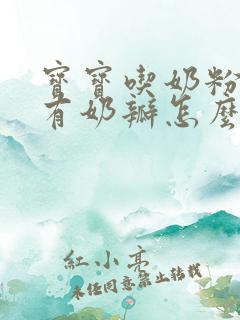 寶寶喫奶粉
有奶瓣怎麼
紅小亮
未經同意禁止轉載